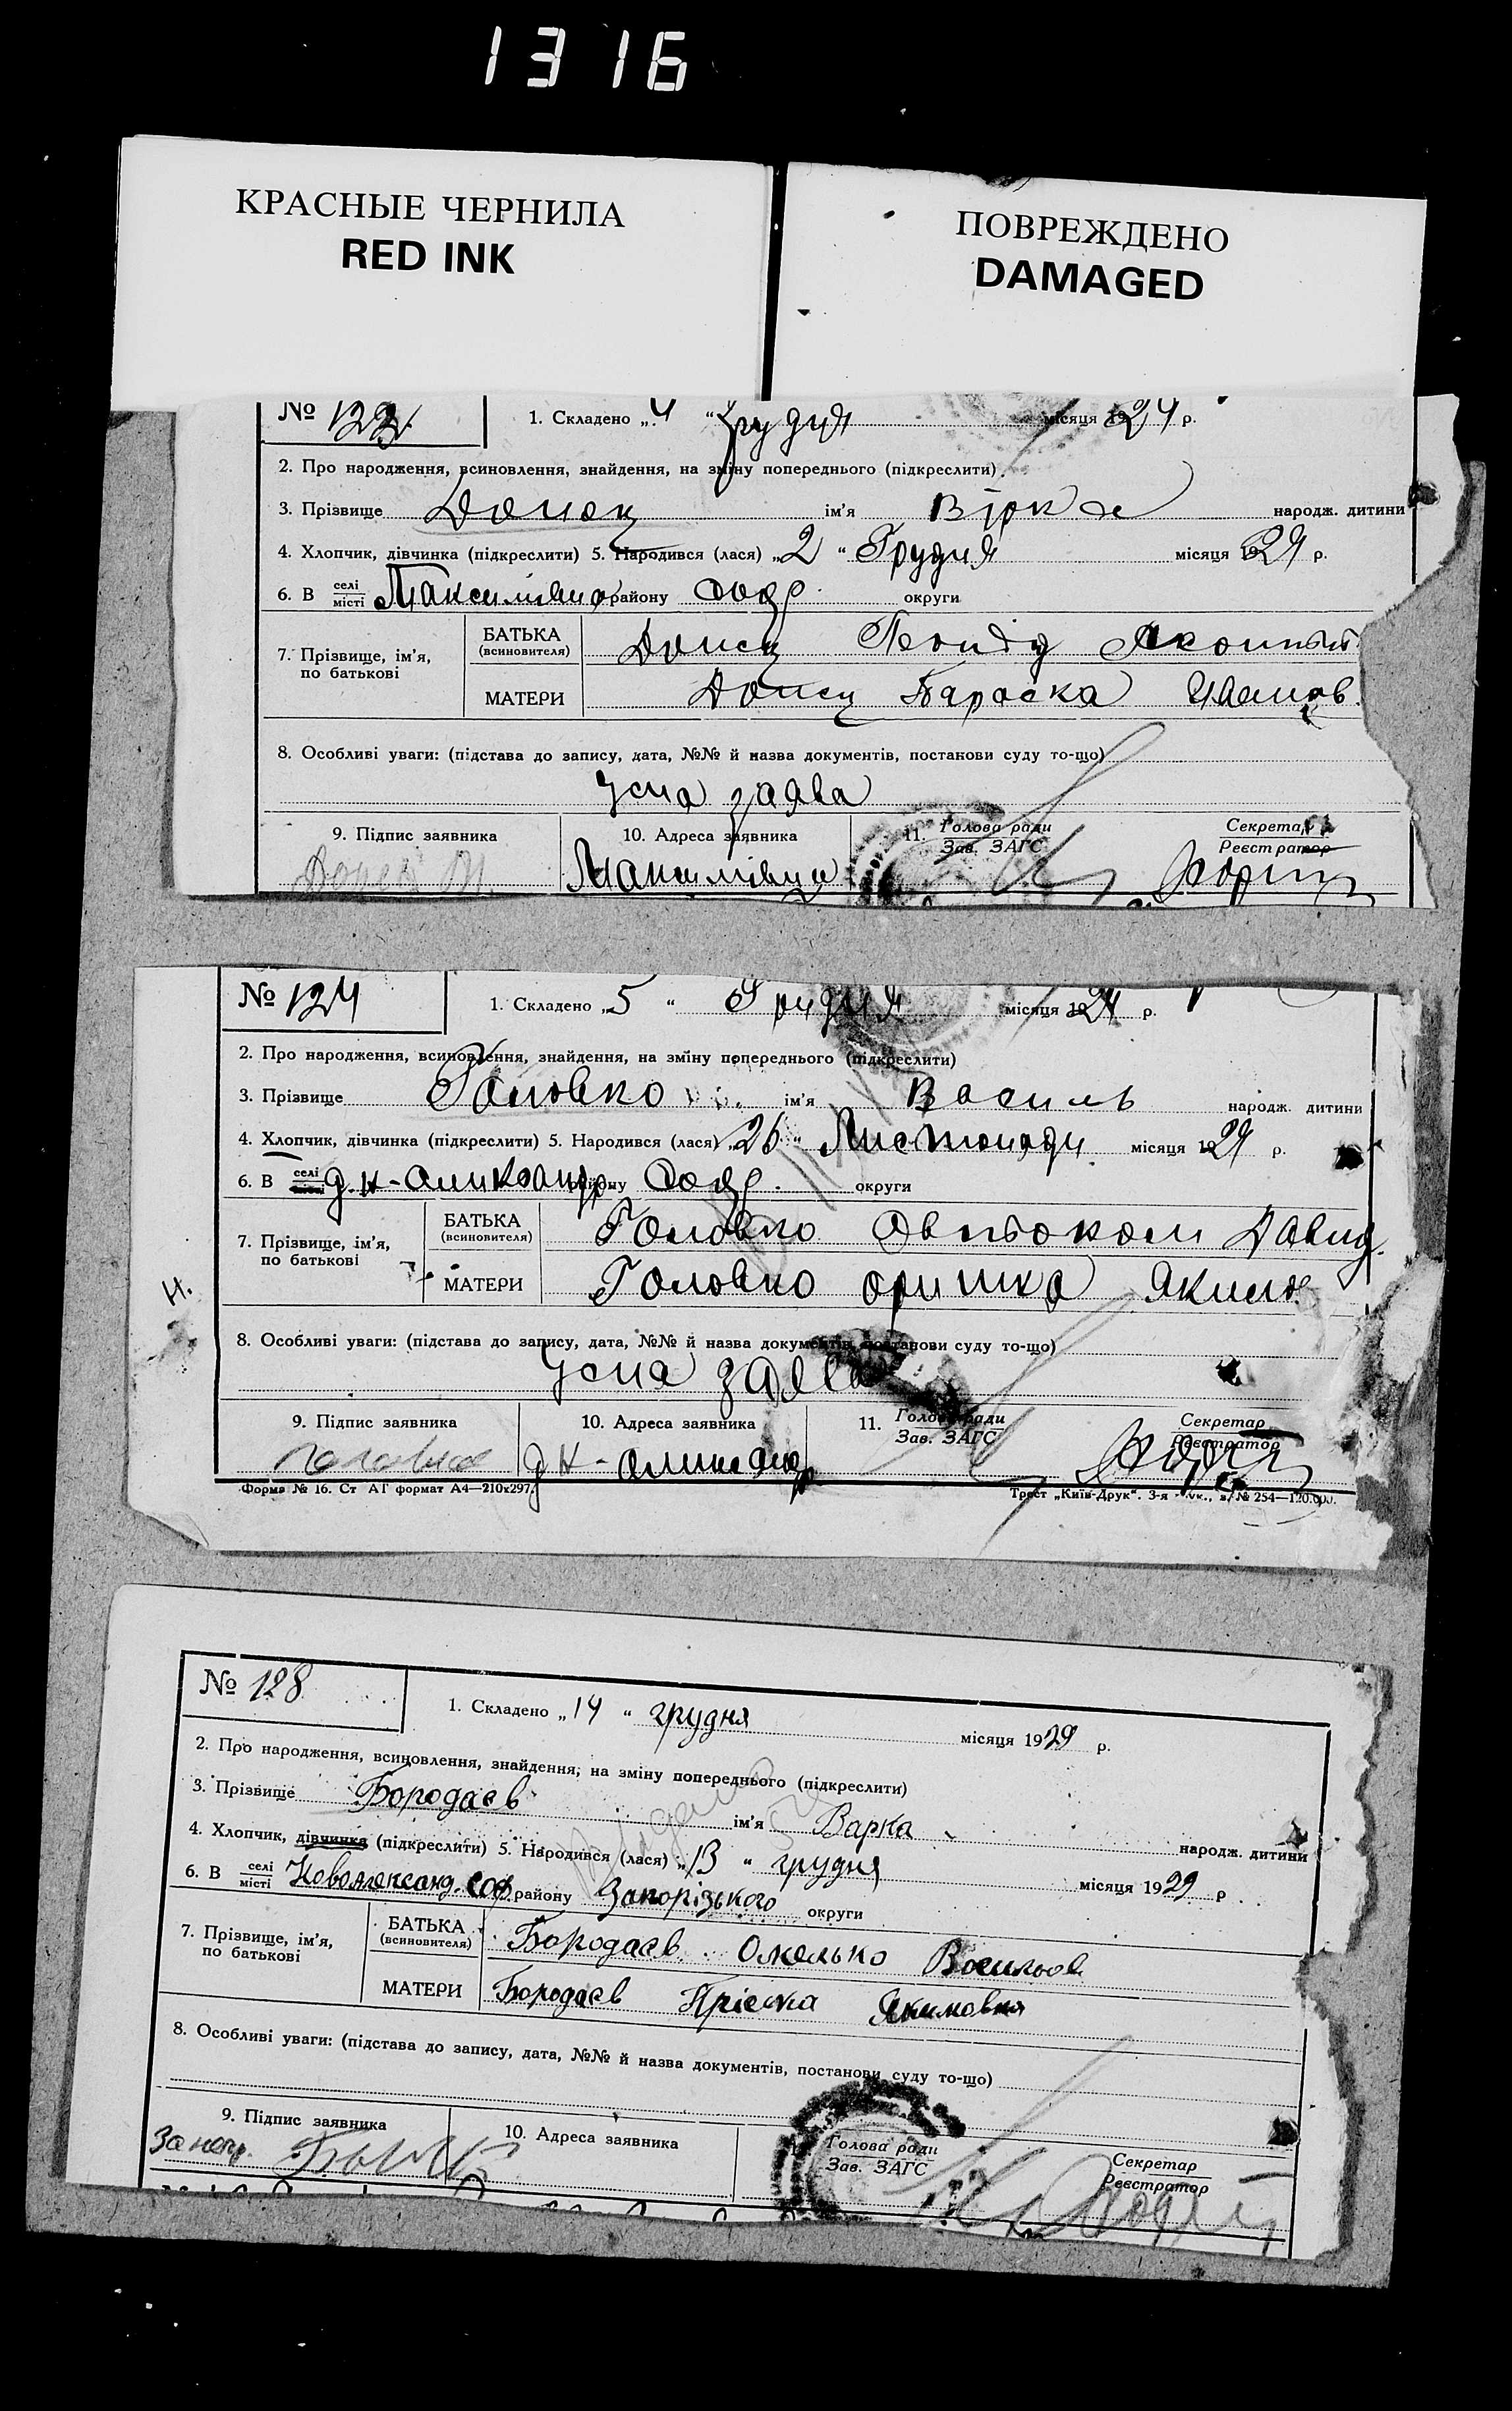 1316
КРАСНЫЕ ЧЕРНИЛА
RED INK
ПОВРЕЖДЕНО
DAMAGED
№ 123 1. Складено „4“ грудня місяця 1929 р.
2. Про народження, всиновлення, знайдення, на зміну попереднього (підкреслити)
3. Прізвище Донец ім'я Вірка народж. дитини
4. Хлопчик, дівчинка (підкреслити) 5. Народився (лася) „2“ Грудня місяця 1929 р.
6. В селі місті району округи
7. Прізвище, ім'я, по батькові
БАТЬКА (всиновителя) Донец
МАТЕРИ Донец Параска
8. Особливі уваги: (підстава до запису, дата, №№ й назва документів, постанови суду то-що)
Усна заява
9. Підпис заявника 10. Адреса заявника 11. Голова ради Зав. ЗАГС Секретар Реєстратор
№ 124 1. Складено „5“ Грудня місяця 1929 р.
2. Про народження, всиновлення, знайдення, на зміну попереднього (підкреслити)
3. Прізвище Головко ім'я Василь народж. дитини
4. Хлопчик, дівчинка (підкреслити) 5. Народився (лася) „26“ Листопада місяця 1929 р.
6. В селі району округи
7. Прізвище, ім'я, по батькові
БАТЬКА (всиновителя) Головко Давид.
МАТЕРИ Головко Оришка Яким
8. Особливі уваги: (підстава до запису, дата, №№ й назва документів, постанови суду то-що)
Усна заява
9. Підпис заявника 10. Адреса заявника 11. Голова ради Зав. ЗАГС Секретар Реєстратор
Форма № 16. Ст АГ формат А4—210х297. Трест „Київ-Друк“. 3-я № 254—120.000.
№ 128 1. Складено „14“ грудня місяця 1929 р.
2. Про народження, всиновлення, знайдення, на зміну попереднього (підкреслити)
3. Прізвище Бородаєв ім'я Варка народж. дитини
4. Хлопчик, дівчинка (підкреслити) 5. Народився (лася) „13“ грудня місяця 1929 р
6. В селі місті Новоалександ. Соф району Запорізького округи
7. Прізвище, ім'я, по батькові
БАТЬКА (всиновителя) Бородаєв Омелько Васильов
МАТЕРИ Бородаєв Пріська Якимовна
8. Особливі уваги: (підстава до запису, дата, №№ й назва документів, постанови суду то-що)
9. Підпис заявника 10. Адреса заявника Голова ради Зав. ЗАГС Секретар Реєстратор